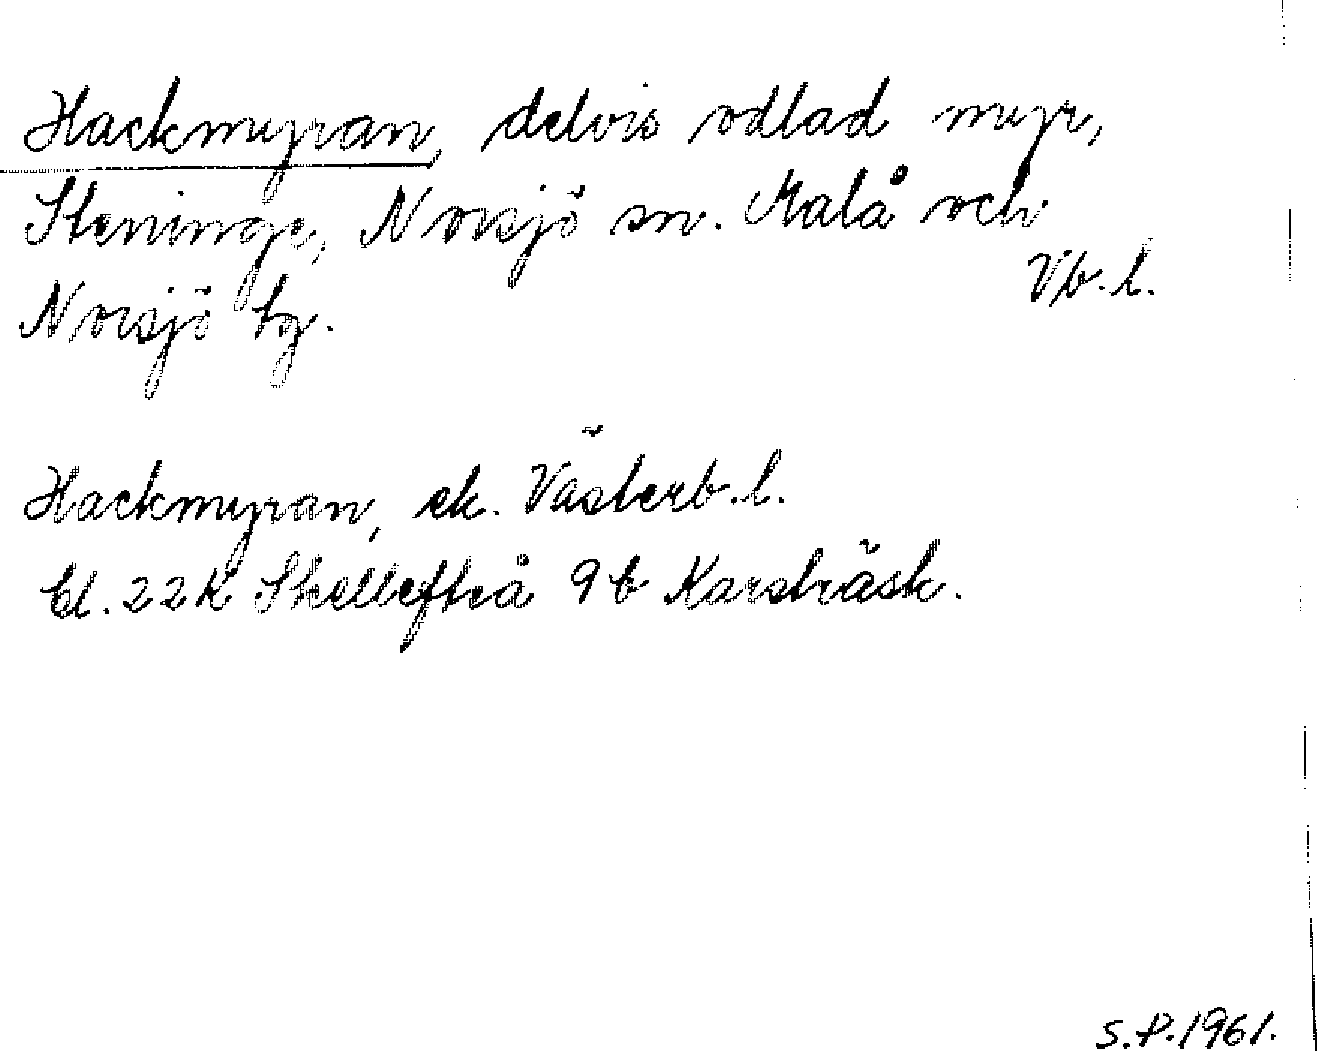 Hackmyran, delvis odlad myr,
Steninge, Norsjö sn. Malå och
Norsjö tg. Vb.l.
Hackmyran, ek. Västerb.l.
bl. 22K Skellefteå 9b Karsträsk.
S.P. 1961.